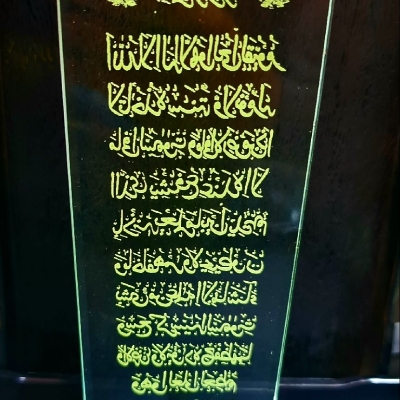 الله لا إله إلا هو الحي القيوم
لا تأخذه سنة ولا نوم
له ما في السموات وما في الأرض من ذا
الذي يشفع عنده إلا
بإذنه يعلم ما بين أيديهم
وما خلفهم ولا يحيطون
بشيء من علمه إلا بما شاء
وسع كرسيه السموات
والأرض ولا يؤوده حفظهما
وهو العلي العظيم